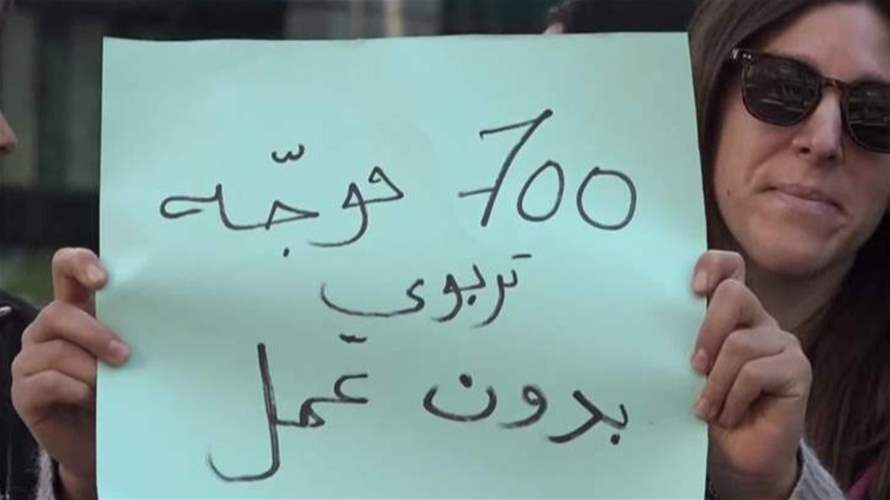 700 موجّه
تربوي
بدون عمل